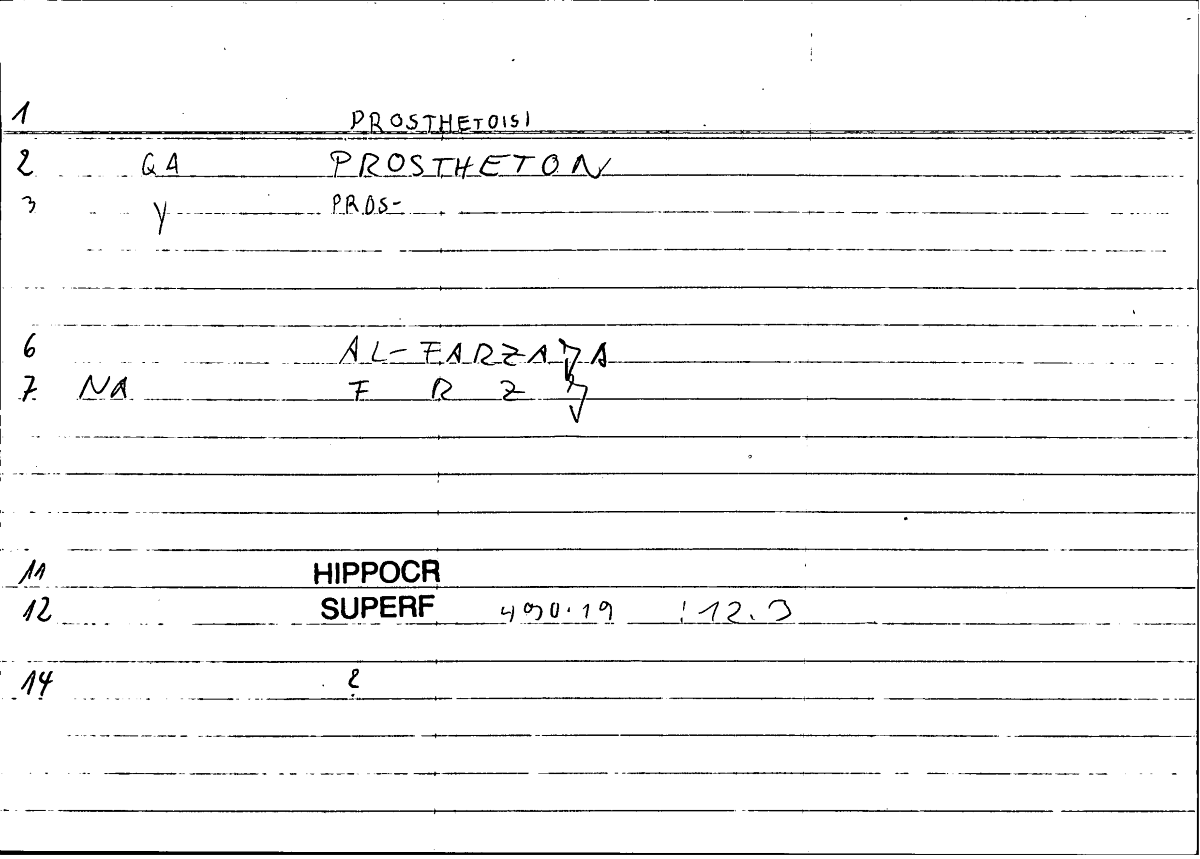 1 PROSTHETOISI
2 GA PROSTHETON
3 Y PROS-
6 AL-FARZAǦA
7 NA F R Z Ǧ
11 HIPPOCR
12 SUPERF 490.19 :12.3
14 2